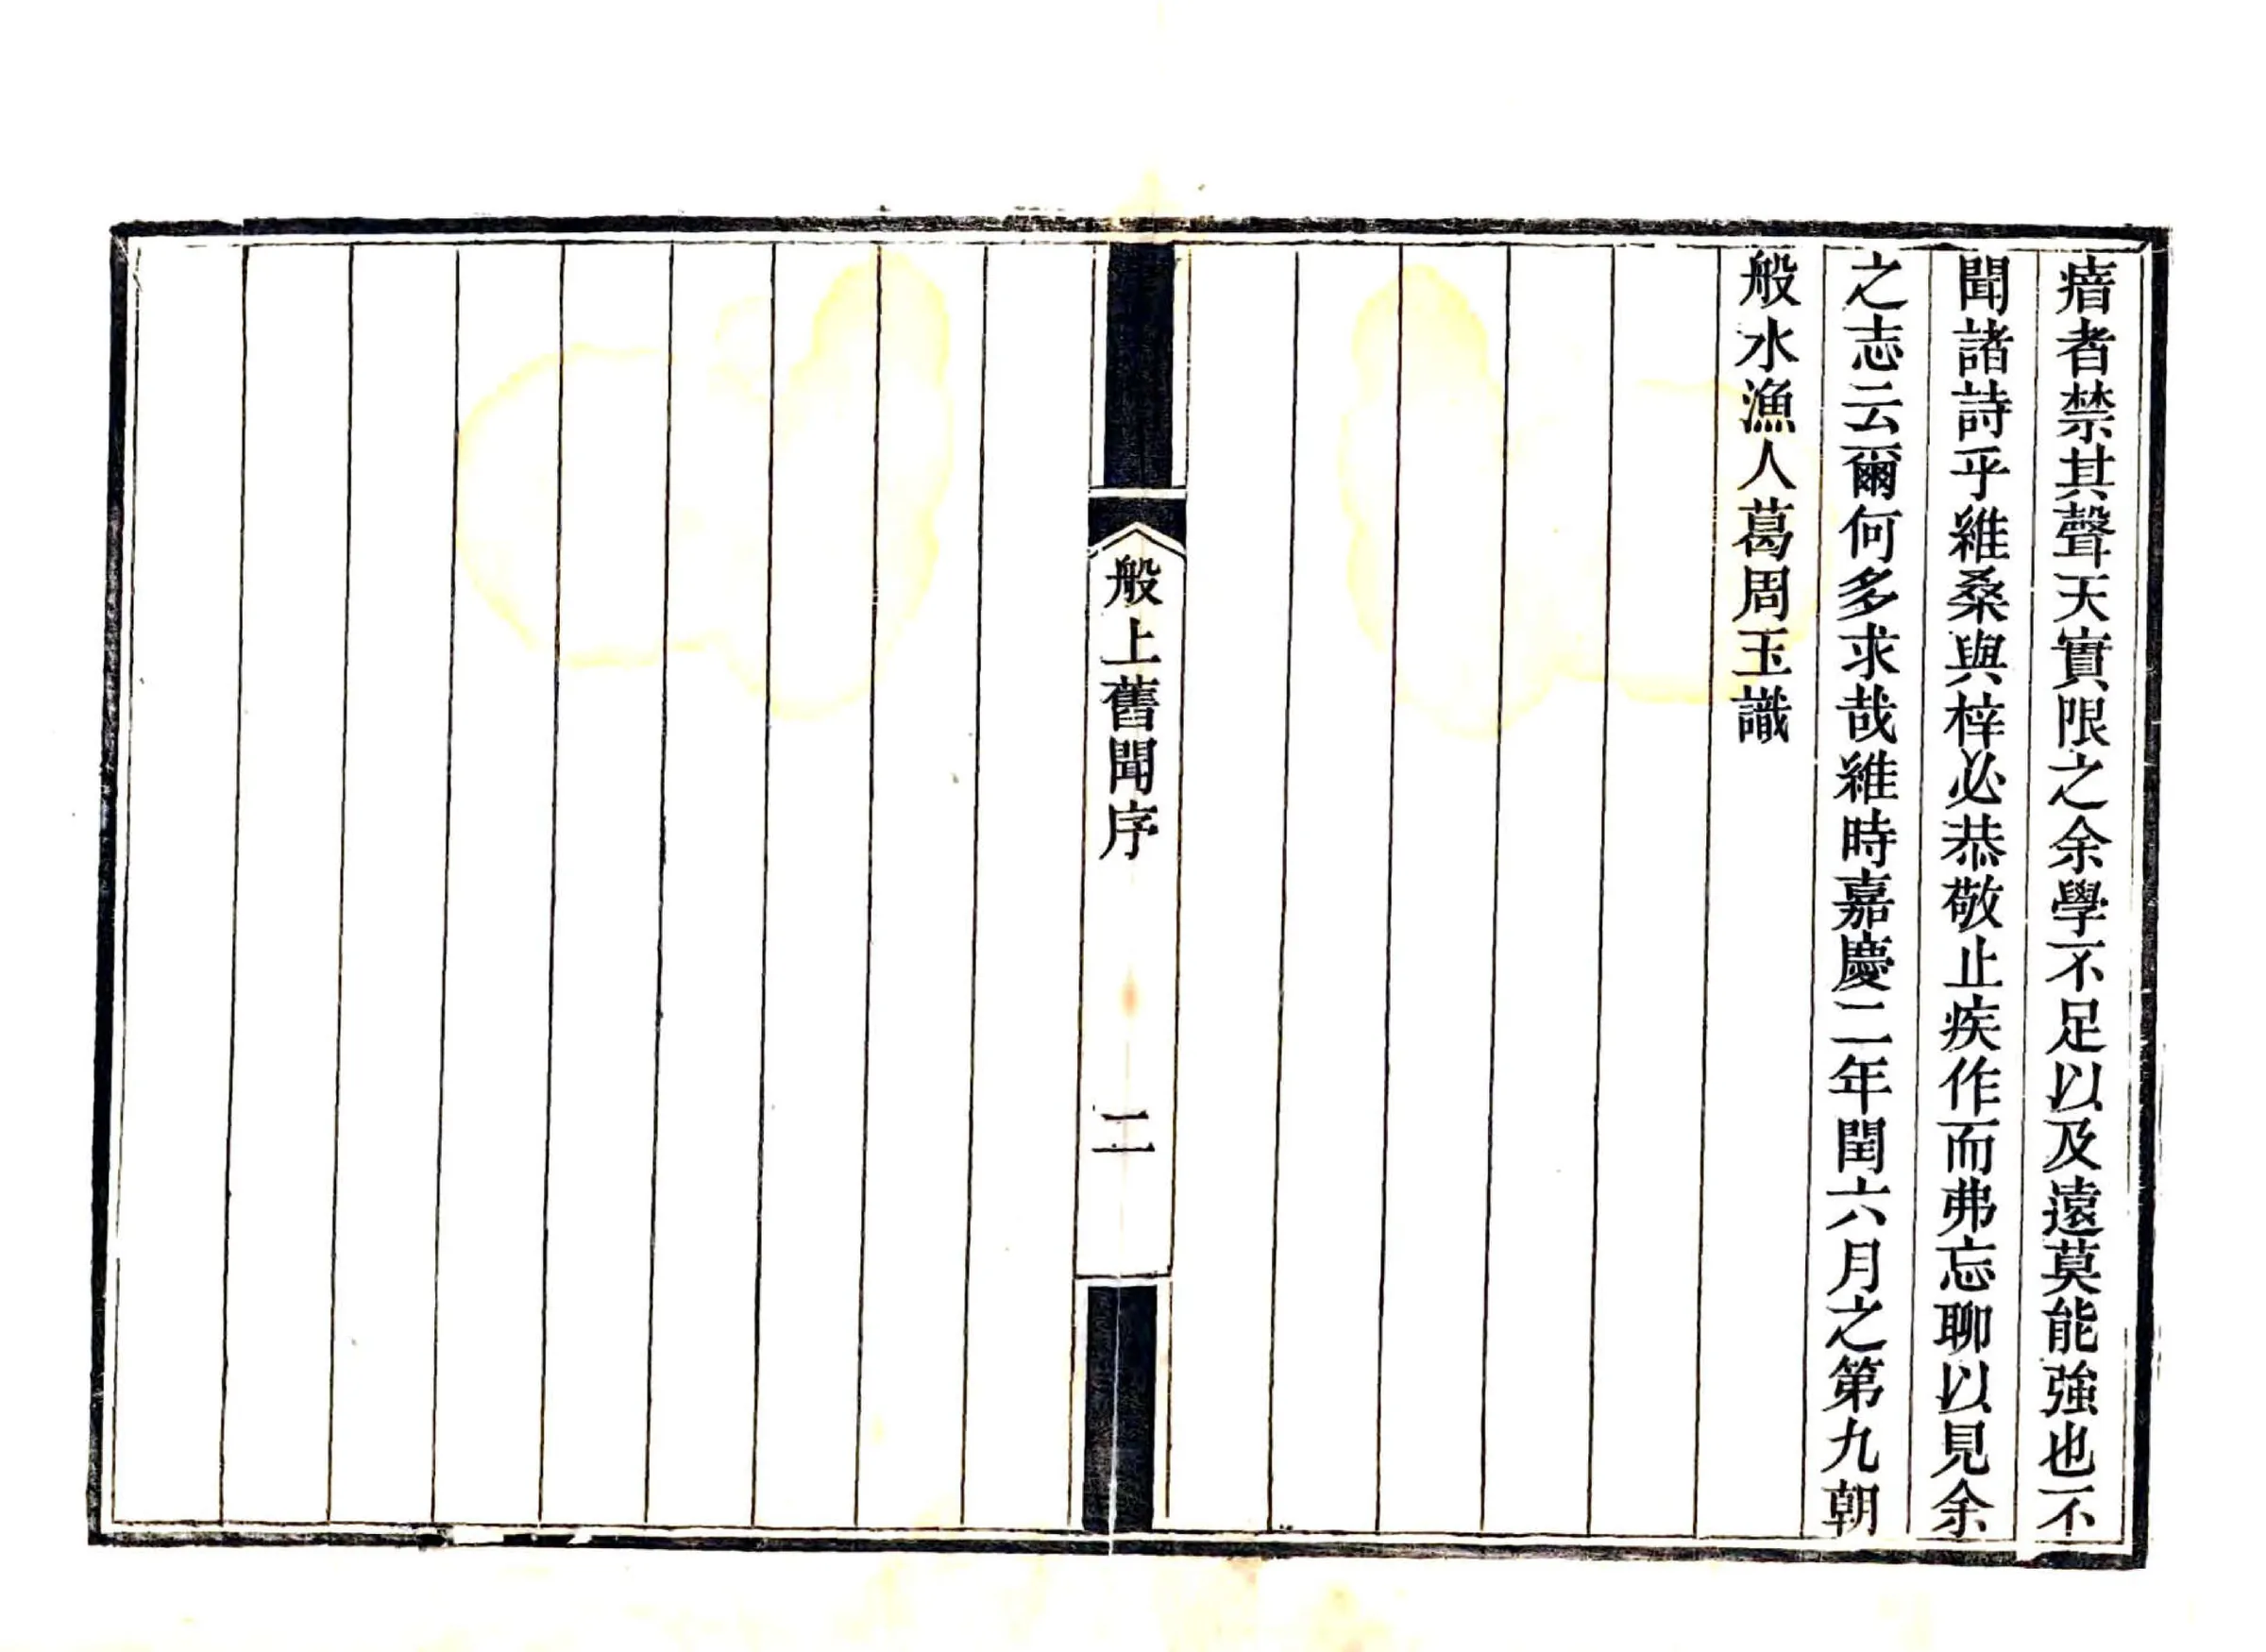 瘖者禁其聲天實限之余學不足以及遠莫能強也不
聞諸詩乎維桑與梓必恭敬止疾作而弗忘聊以見余
之志云爾何多求哉維時嘉慶二年閏六月之第九朝
般水漁人葛周玉識
般上舊聞序
二